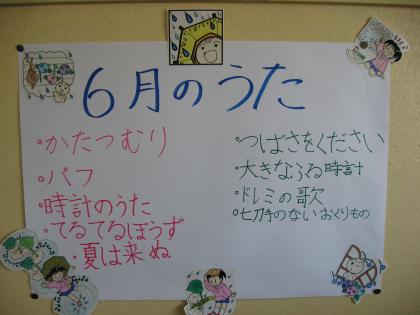 6月のうた
・かたつむり
・パフ
・時計のうた
・てるてるぼうず
・夏は来ぬ
・つばさをください
・大きなふる時計
・ドレミの歌
・切手のないおくりもの